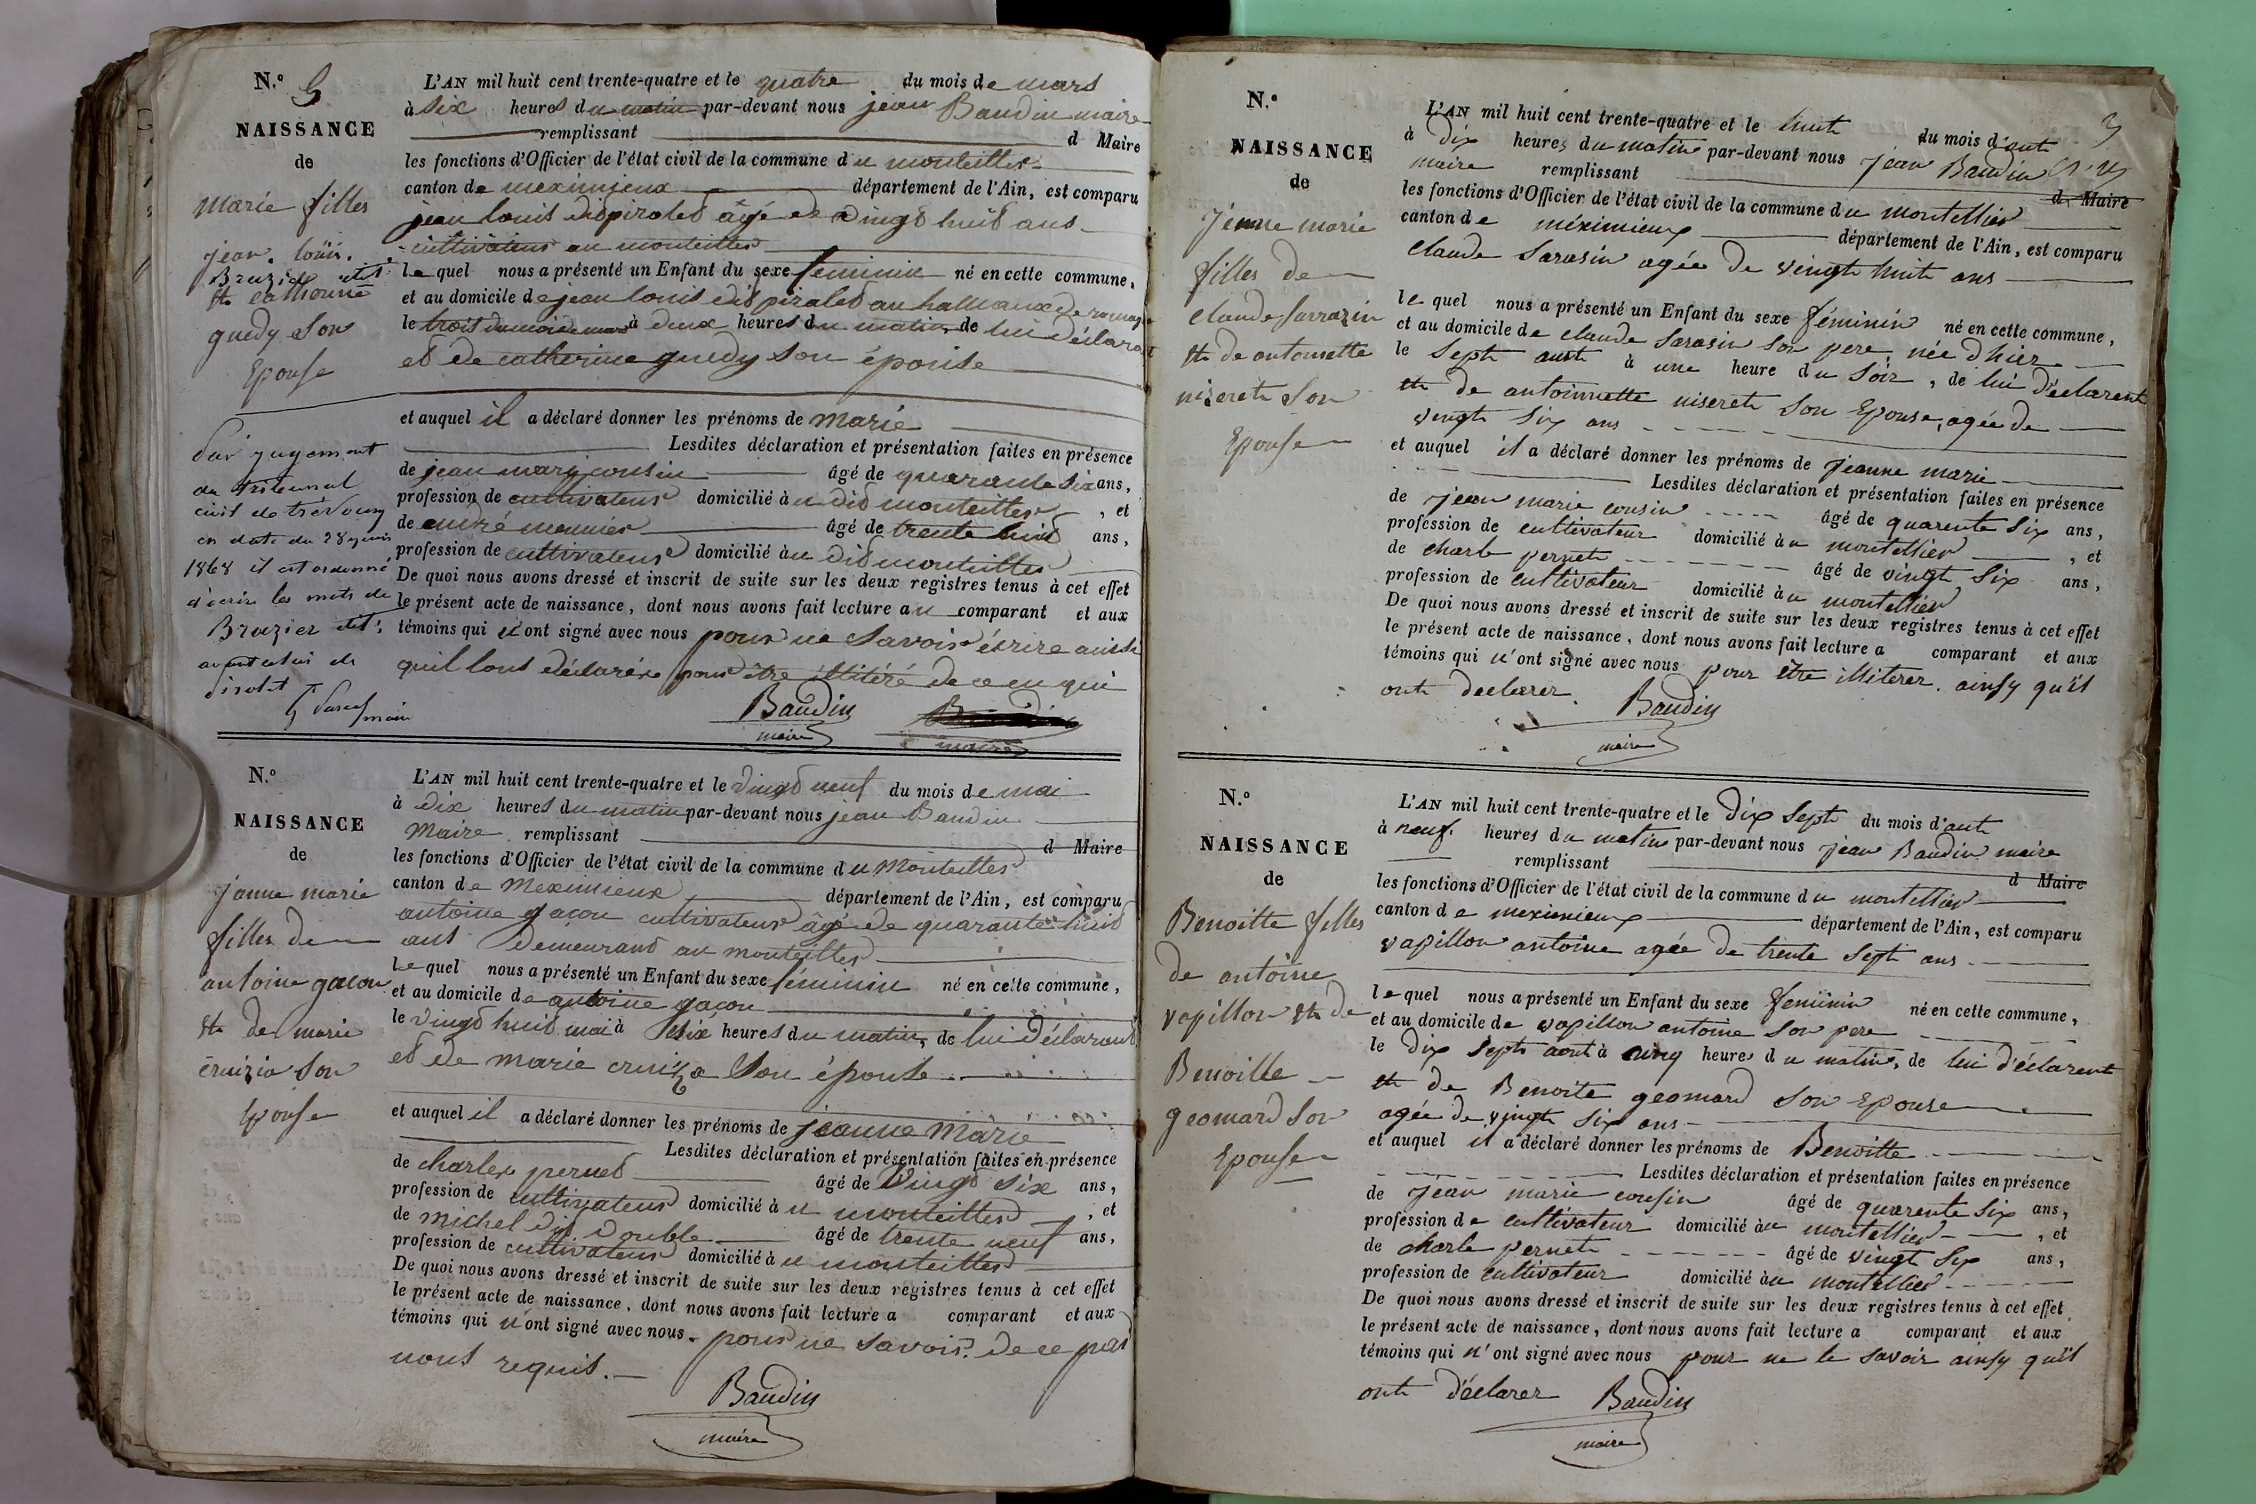 N.° 5
NAISSANCE
de
marie filles
jean. loüis.
Brazier dit
et catherine
guedy Son
Epouse
Par jugement
du tribunal
civil de trévoux
en date du 28 juin
1868 il est ordonné
d'écrire les mots de
Brazier dit
avant celui de
pirolet
maire
L'AN mil huit cent trente-quatre et le quatre du mois de mars
à six heures du matin par-devant nous jean Baudin maire
remplissant d Maire
les fonctions d'Officier de l'état civil de la commune du monteillier
canton de meximieux département de l'Ain, est comparu
jean louis dit piroled âgé de vingt huit ans
cultivateur au monteillier
lequel nous a présenté un Enfant du sexe féminin né en cette commune,
et au domicile de jean louis dit piroled au hamaux de romag
le trois du mois de mars à deux heures du matin de lui déclarant
et de catherine guedy son épouse
et auquel il a déclaré donner les prénoms de marie
Lesdites déclaration et présentation faites en présence
de jean mary cousin âgé de quarante six ans,
profession de cultivateur domicilié à u dit monteillier, et
de andré monnier âgé de trente huit ans,
profession de cultivateur domicilié à u dit monteillier
De quoi nous avons dressé et inscrit de suite sur les deux registres tenus à cet effet
le présent acte de naissance, dont nous avons fait lecture au comparant et aux
témoins qui n'ont signé avec nous pour ne savoir écrire ainsi
quil lont déclaré pour être illitéré de ce en qui
Baudin
maire
maire
N.°
NAISSANCE
de
janne marie
filles de
antoine gacon
et de marie
cruizia son
Epouse
L'AN mil huit cent trente-quatre et le vingt neuf du mois de mai
à dix heures du matin par-devant nous jean Baudin
Maire remplissant d Maire
les fonctions d'Officier de l'état civil de la commune du Monteillier
canton de Meximieux département de l'Ain, est comparu
antoine gacon cultivateur âgé de quarante huit
ans demeurant au monteillier
lequel nous a présenté un Enfant du sexe féminin né en cette commune,
et au domicile de antoine gacon
le vingt huit mai à six heures du matin, de lui déclarant
et de marie cruizia Son épouse
et auquel il a déclaré donner les prénoms de jeanne Marie
Lesdites déclaration et présentation faites en présence
de charles pernet âgé de vingt six ans,
profession de cultivateur domicilié à u monteillier, et
de michel dit double âgé de trente neuf ans,
profession de cultivateur domicilié à u monteillier
De quoi nous avons dressé et inscrit de suite sur les deux registres tenus à cet effet
le présent acte de naissance, dont nous avons fait lecture a comparant et aux
témoins qui n'ont signé avec nous. pour ne savoir. de ce par
nous requis.
Baudin
maire
3
N.°
NAISSANCE
de
Jeanne marie
filles de
claude Sarrazin
et de antoinette
niseret Son
Epouse
L'AN mil huit cent trente-quatre et le huit du mois d'aut
à dix heures du matin par-devant nous jean Baudin
maire remplissant d Maire
les fonctions d'Officier de l'état civil de la commune du montellier
canton de méximieux département de l'Ain, est comparu
claude Sarasin agée de vingt huit ans
lequel nous a présenté un Enfant du sexe féminin né en cette commune,
et au domicile de claude Sarasin Son pere née d'hier
le Sept aut à une heure du Soir, de lui déclarent
et de antoinnette niseret Son Epouse, agée de
vingt Six ans
et auquel il a déclaré donner les prénoms de jeanne marie
Lesdites déclaration et présentation faites en présence
de jean marie cousin âgé de quarente Six ans,
profession de cultivateur domicilié à u montellier, et
de charle pernet âgé de vingt Six ans,
profession de cultivateur domicilié à u montellier
De quoi nous avons dressé et inscrit de suite sur les deux registres tenus à cet effet
le présent acte de naissance, dont nous avons fait lecture a comparant et aux
témoins qui n'ont signé avec nous pour être illiterer. ainsy qu'il
ont declarer.
Baudin
maire
N.°
NAISSANCE
de
Benoitte filles
de antoine
vapillon et de
Benoitte
geomard Son
Epouse
L'AN mil huit cent trente-quatre et le Dix Sept du mois d'aut
à neuf heures du matin par-devant nous jean Baudin maire
remplissant d Maire
les fonctions d'Officier de l'état civil de la commune du montellier
canton de meximieux département de l'Ain, est comparu
vapillon antoine agée de trente Sept ans
lequel nous a présenté un Enfant du sexe feminin né en cette commune,
et au domicile de vapillon antoine Son pere
le Dix Sept aout à cinq heures du matin, de lui déclarent
et de Benoite geomard Son Epouse
agée de vingt Six ans
et auquel il a déclaré donner les prénoms de Benoitte
Lesdites déclaration et présentation faites en présence
de jean marie cousin âgé de quarente Six ans,
profession de cultivateur domicilié à u montellier, et
de charle pernet âgé de vingt Six ans,
profession de cultivateur domicilié à u montellier
De quoi nous avons dressé et inscrit de suite sur les deux registres tenus à cet effet
le présent acte de naissance, dont nous avons fait lecture a comparant et aux
témoins qui n'ont signé avec nous pour ne le savoir ainsy qu'il
ont déclarer
Baudin
maire